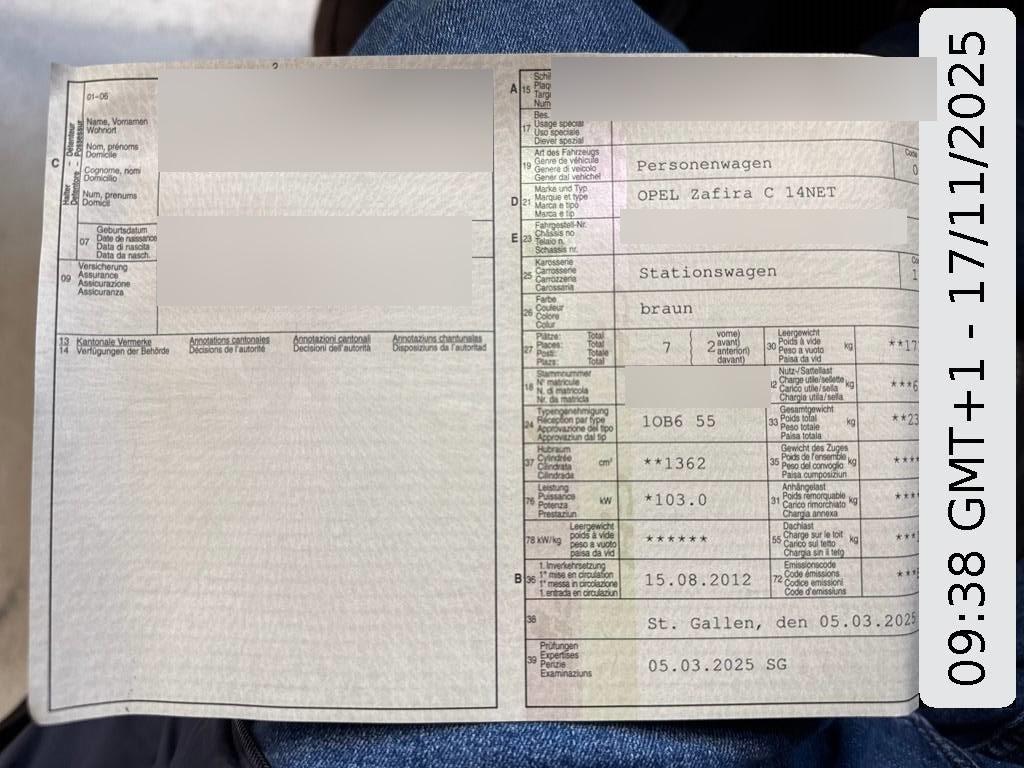 01-06
C
Halter - Détenteur
Detentore - Possessur
Name, Vornamen
Wohnort
Nom, prénoms
Domicile
Cognome, nomi
Domicilio
Num, prenums
Domicil
07
Geburtsdatum
Date de naissance
Data di nascita
Data da nasch.
09
Versicherung
Assurance
Assicurazione
Assicuranza
13 Kantonale Vermerke Annotations cantonales Annotazioni cantonali Annotaziuns chantunales
14 Verfügungen der Behörde Décisions de l'autorité Decisioni dell'autorità Disposiziuns da l'autoritad
A 15
Num
17
Usage spécial
Uso speciale
Diever spezial
19
Art des Fahrzeugs
Genre de véhicule
Genere di veicolo
Gener dal vehichel
Personenwagen
D 21
Marke und Typ
Marque et type
Marca e tipo
Marca e tip
OPEL Zafira C 14NET
E 23
Fahrgestell-Nr.
Châssis no
Telaio n.
Schassis nr.
25
Karosserie
Carrosserie
Carrozzeria
Carossaria
Stationswagen
26
Farbe
Couleur
Colore
Colur
braun
27
Plätze: Total
Places: Total
Posti: Totale
Plazs: Total
7
2
vorne)
avant)
anteriori)
davant)
30
Leergewicht
Poids à vide
Peso a vuoto
Paisa da vid
kg
**17
18
Stammnummer
N° matricule
N. di matricola
Nr. da matricla
Nutz-/Sattellast
Charge utile/sellette
Carico utile/sella
Chargia utila/sella
kg
***6
24
Typengenehmigung
Réception par type
Approvazione del tipo
Approvaziun dal tip
1OB6 55
33
Gesamtgewicht
Poids total
Peso totale
Paisa totala
kg
**23
37
Hubraum
Cylindrée
Cilindrata
Cilindrada
cm³
**1362
35
Gewicht des Zuges
Poids de l'ensemble
Peso del convoglio
Paisa cumposiziun
kg
76
Leistung
Puissance
Potenza
Prestaziun
kW
*103.0
31
Anhängelast
Poids remorquable
Carico rimorchiato
Chargia annexa
kg
78 kW/kg
Leergewicht
poids à vide
peso a vuoto
paisa da vid
******
55
Dachlast
Charge sur le toit
Carico sul tetto
Chargia sin il tetg
kg
B 36
1. Inverkehrsetzung
1ʳᵉ mise en circulation
1ª messa in circolazione
1. entrada en circulaziun
15.08.2012
72
Emissionscode
Code émissions
Codice emissioni
Code d'emissiuns
38
St. Gallen, den 05.03.2025
39
Prüfungen
Expertises
Perizie
Examinaziuns
05.03.2025 SG
09:38 GMT+1 - 17/11/2025